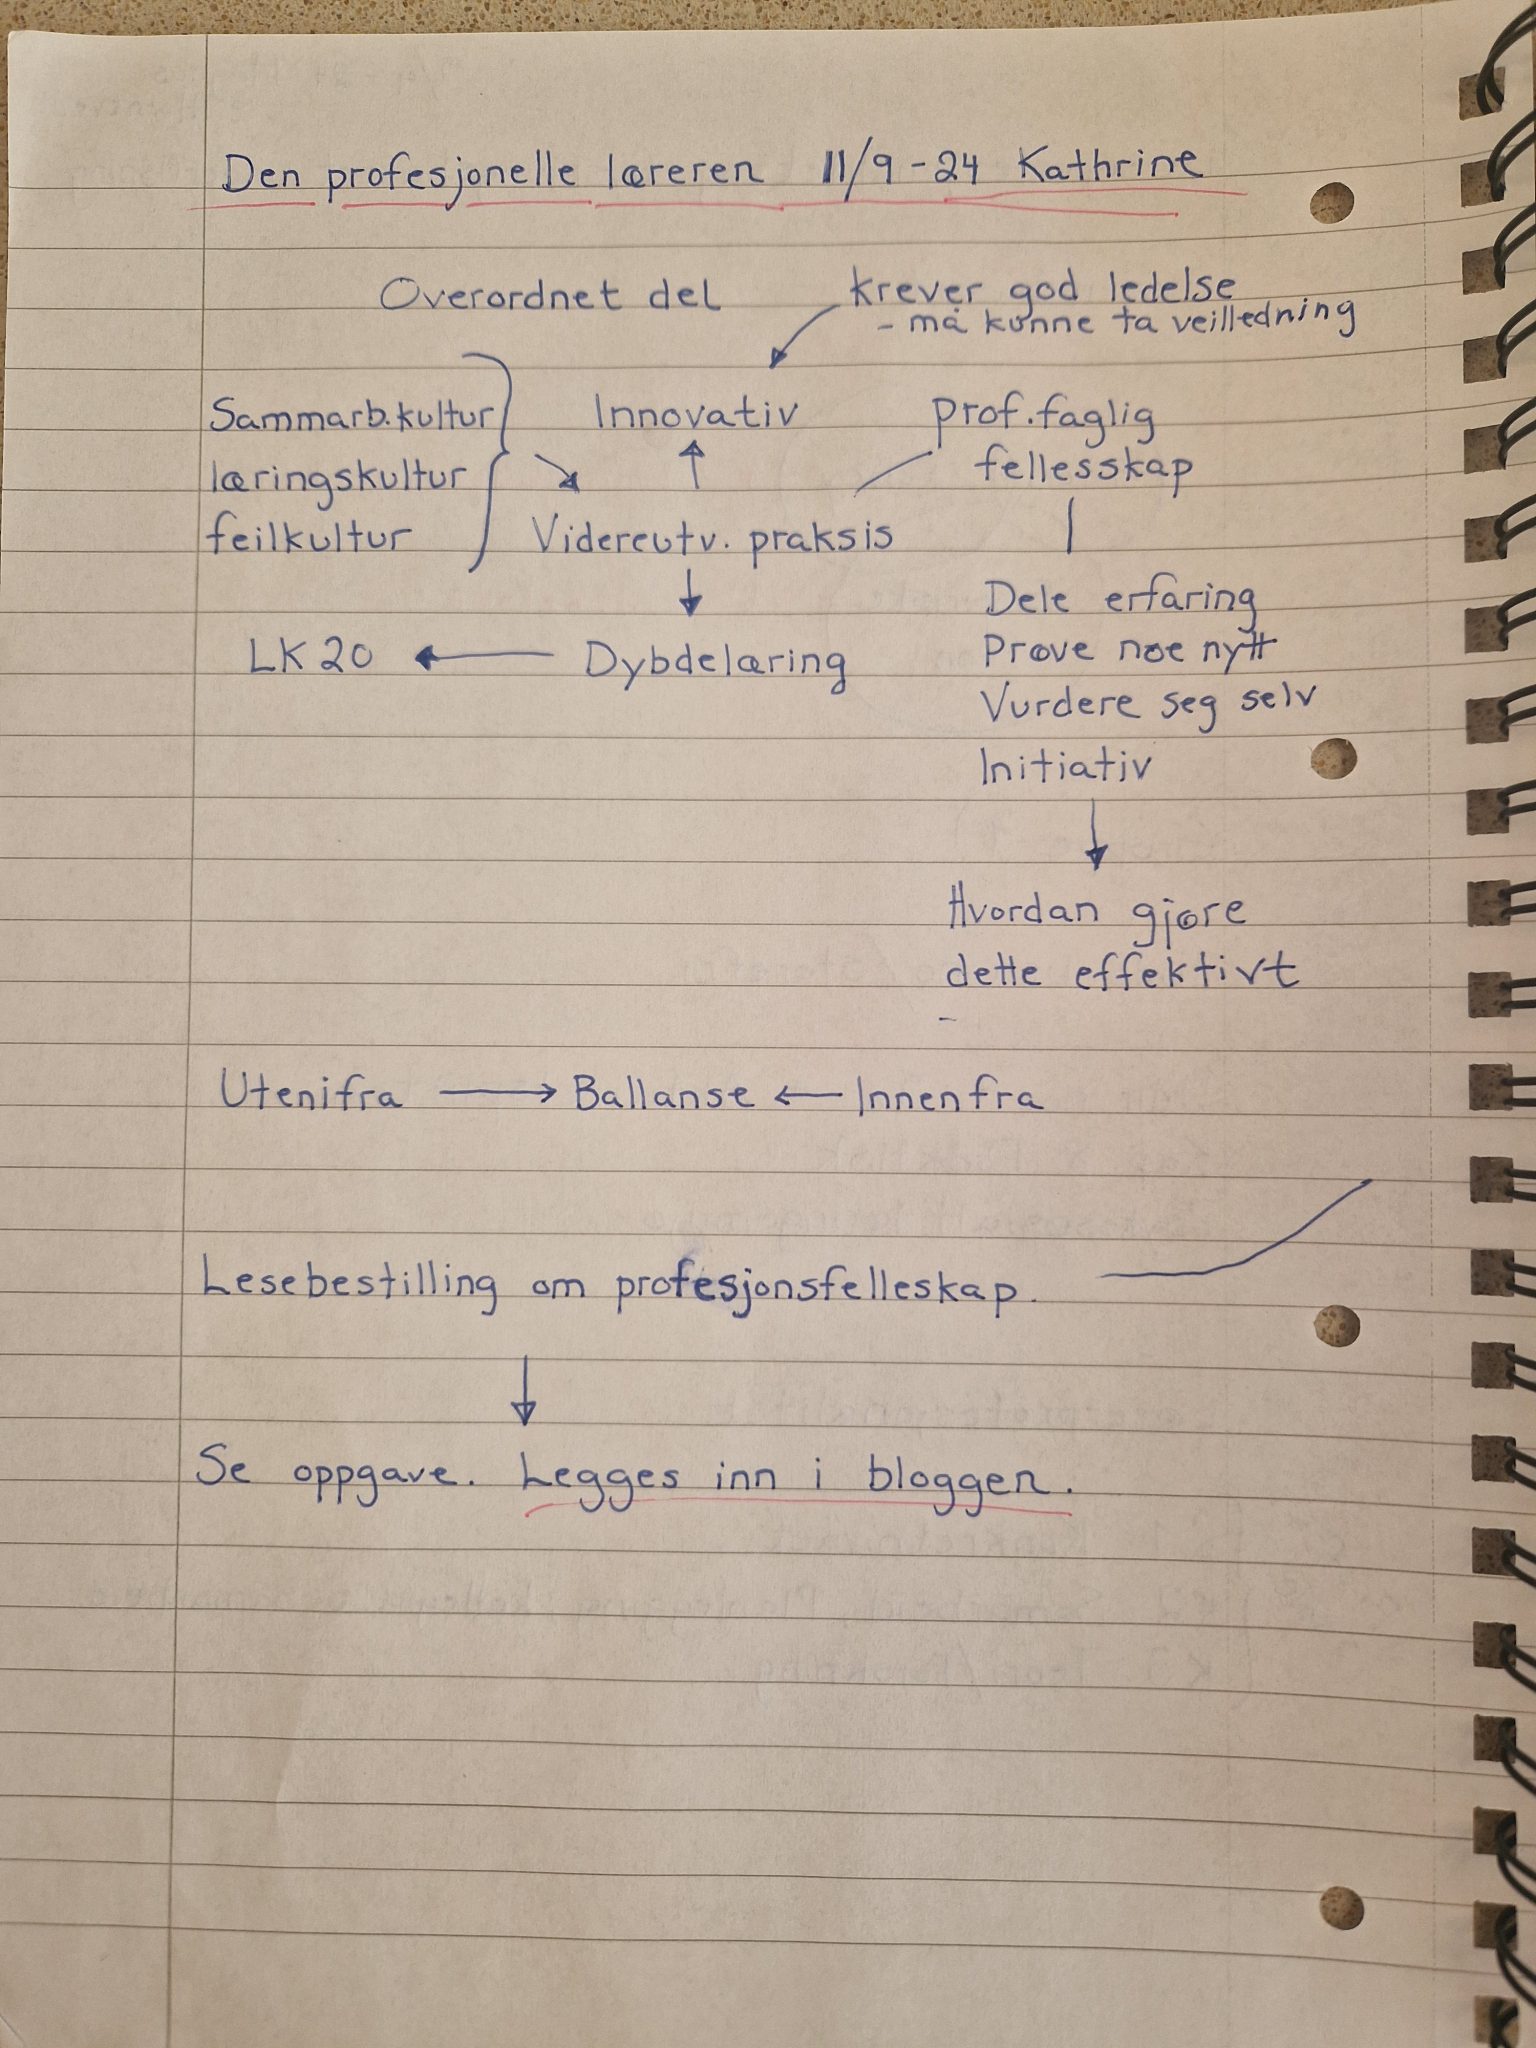 Den profesjonelle læreren 11/9-24 Kathrine
Overordnet del
krever god ledelse
- må kunne ta veilledning
Sammarb.kultur
læringskultur
feilkultur
Innovativ
Prof.faglig
fellesskap
Videreutv. praksis
LK20 ← Dybdelæring
Dele erfaring
Prøve noe nytt
Vurdere seg selv
Initiativ
Hvordan gjøre
dette effektivt
-
Utenifra → Ballanse ← Innenfra
Lesebestilling om profesjonsfelleskap.
Se oppgave. Legges inn i bloggen.